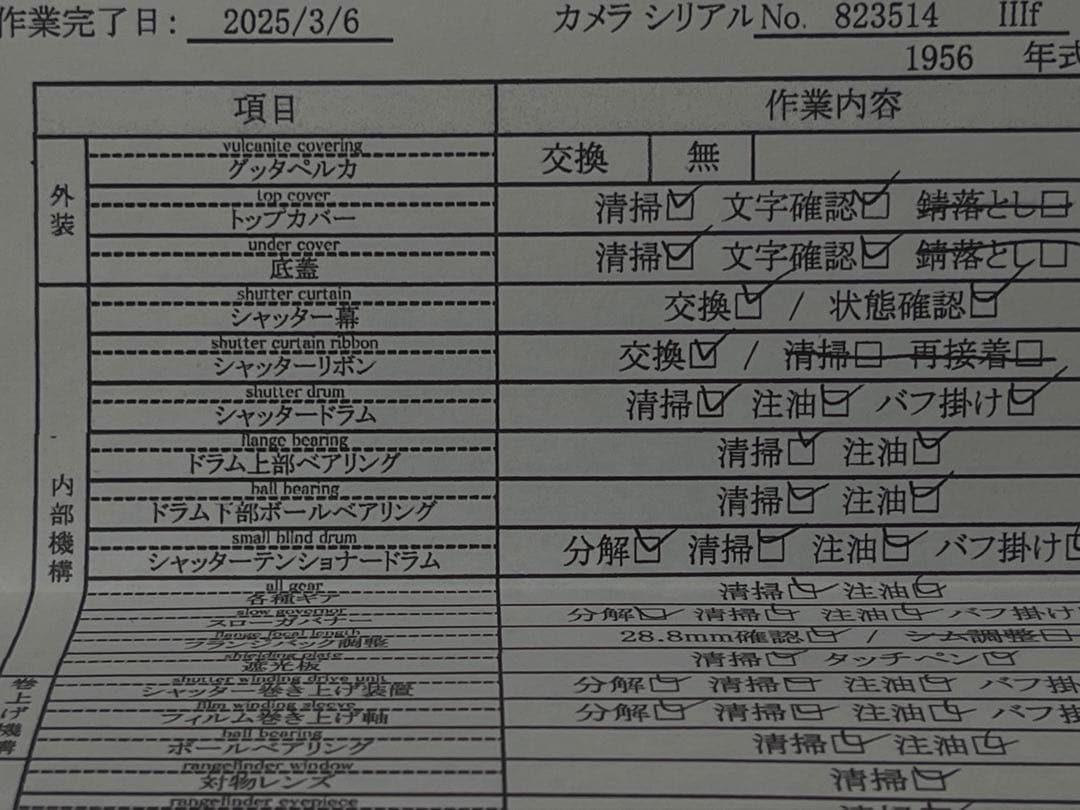 作業完了日: 2025/3/6 カメラ シリアルNo. 823514 IIIf
1956 年式
項目 作業内容
外装
vulcanite covering
グッタペルカ 交換 無
top cover
トップカバー 清掃☑ 文字確認☑ 錆落とし□
under cover
底蓋 清掃☑ 文字確認☑ 錆落とし□
内部機構
shutter curtain
シャッター幕 交換☑ / 状態確認☑
shutter curtain ribbon
シャッターリボン 交換☑ / 清掃□ 再接着□
shutter drum
シャッタードラム 清掃☑ 注油☑ バフ掛け☑
flange bearing
ドラム上部ベアリング 清掃☑ 注油☑
ball bearing
ドラム下部ボールベアリング 清掃☑ 注油☑
small blind drum
シャッターテンショナードラム 分解☑ 清掃☑ 注油☑ バフ掛け
all gear
各種ギア 清掃☑ 注油☑
slow governor
スローガバナー 分解☑ 清掃☑ 注油☑ バフ掛け
flange focal length
フランジバック調整 28.8mm確認☑ / シム調整□
shielding plate
遮光板 清掃☑ タッチペン☑
巻上げ機構
shutter winding drive unit
シャッター巻き上げ装置 分解☑ 清掃☑ 注油☑ バフ掛
film winding sleeve
フィルム巻き上げ軸 分解☑ 清掃☑ 注油☑ バフ掛
ball bearing
ボールベアリング 清掃☑ 注油☑
rangefinder window
対物レンズ 清掃☑
rangefinder eyepiece